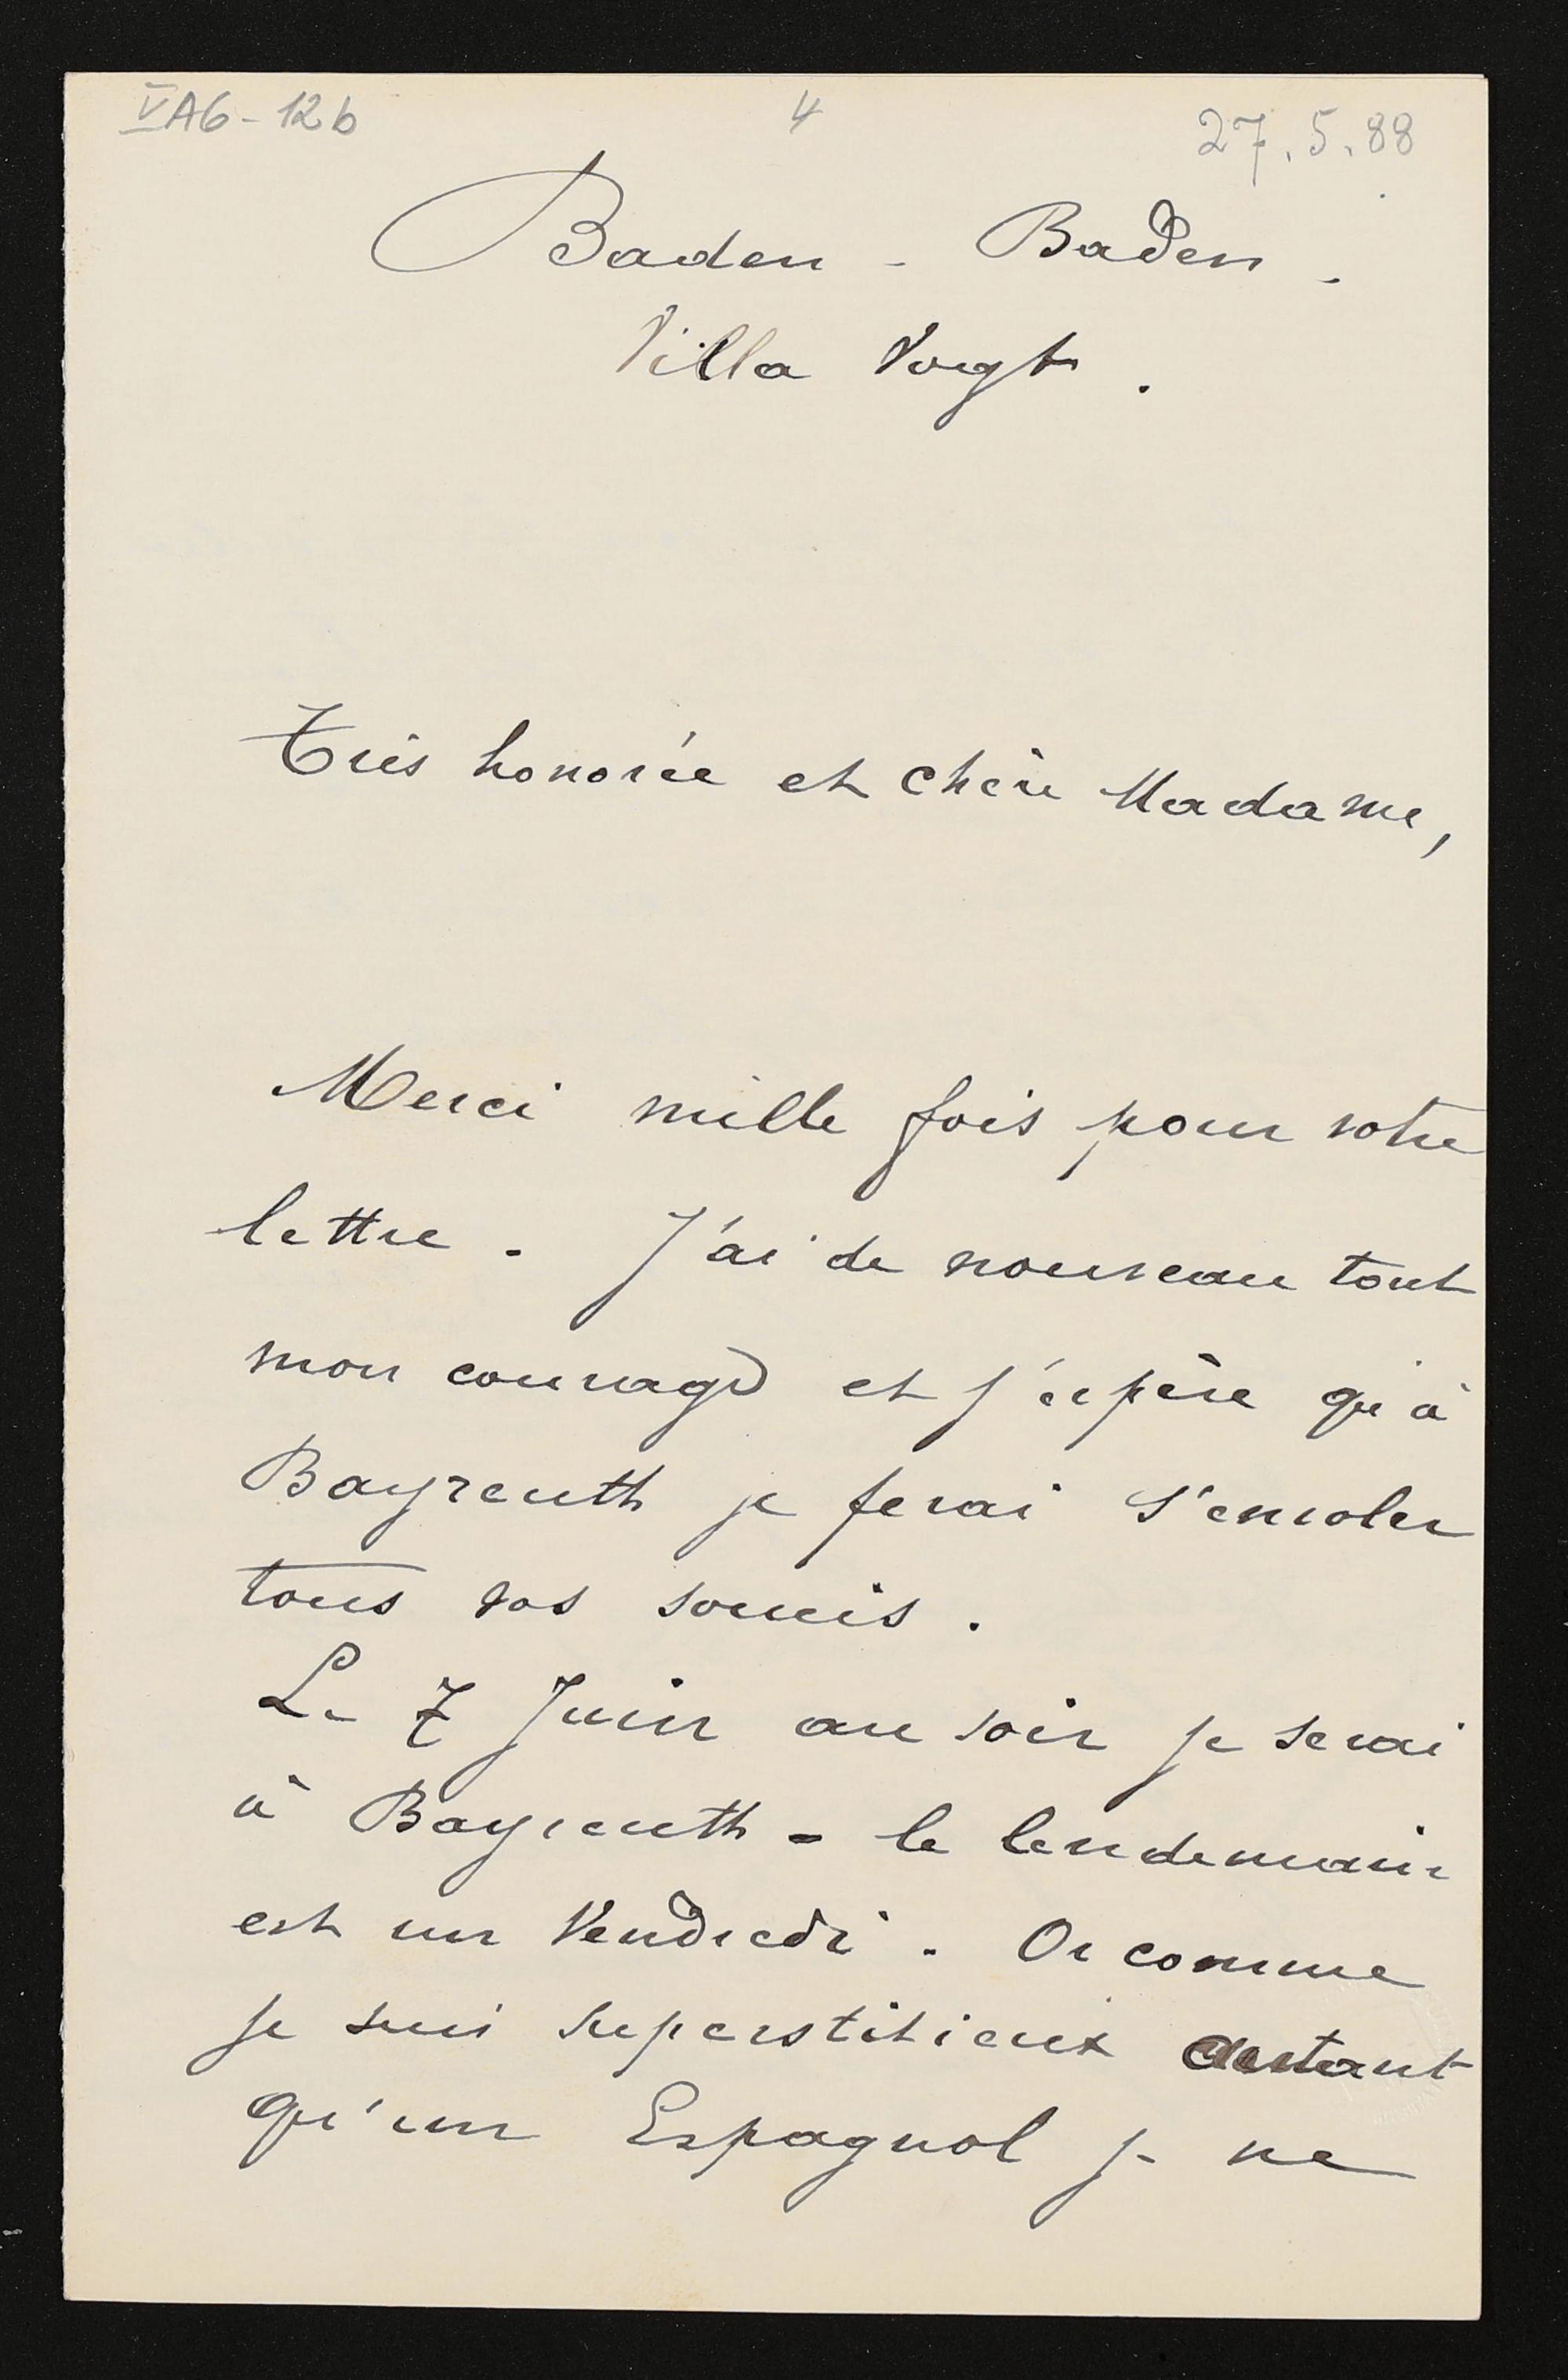 VA6-12b 4 27.5.88
Baden - Baden.
Villa Voigt.
Très honorée et chère Madame,
Merci mille fois pour votre
lettre. J'ai de nouveau tout
mon courage et j'espère qu'à
Bayreuth je ferai s'envoler
tous vos soucis.
Le 7 Juin au soir je serai
à Bayreuth - le lendemain
est un Vendredi. Or comme
je suis superstitieux autant
qu'un Espagnol je ne